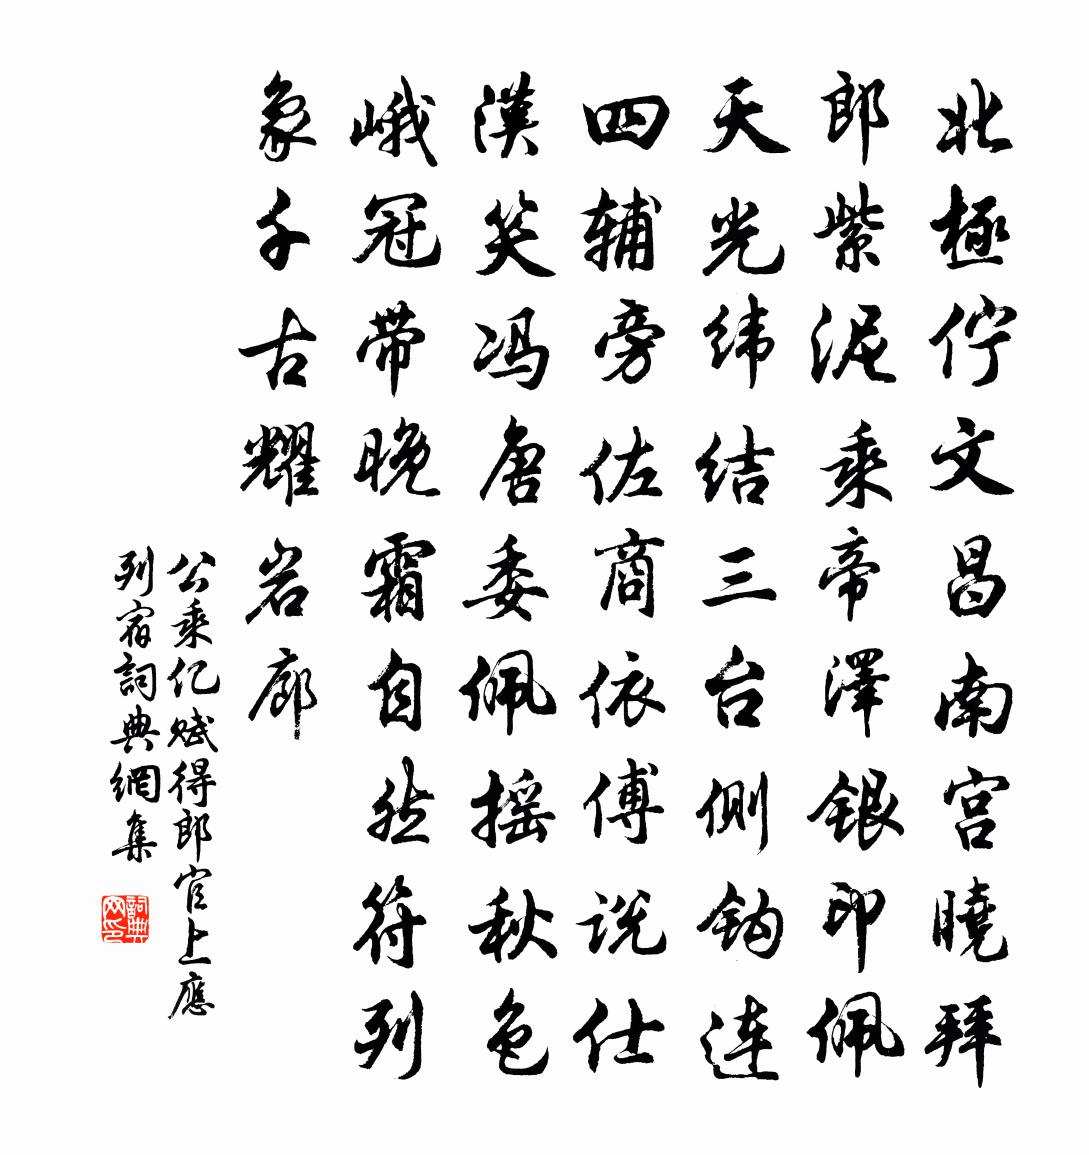 北極佇文昌南宮曉拜
郎紫泥乘帝澤銀印佩
天光緯結三台側鈎連
四辅旁佐商依傅说仕
漢笑冯唐委佩摇秋色
峨冠带晚霜自然符列
象千古耀岩廊
公乘亿赋得郎官上應
列宿詞典網集
詞典网印